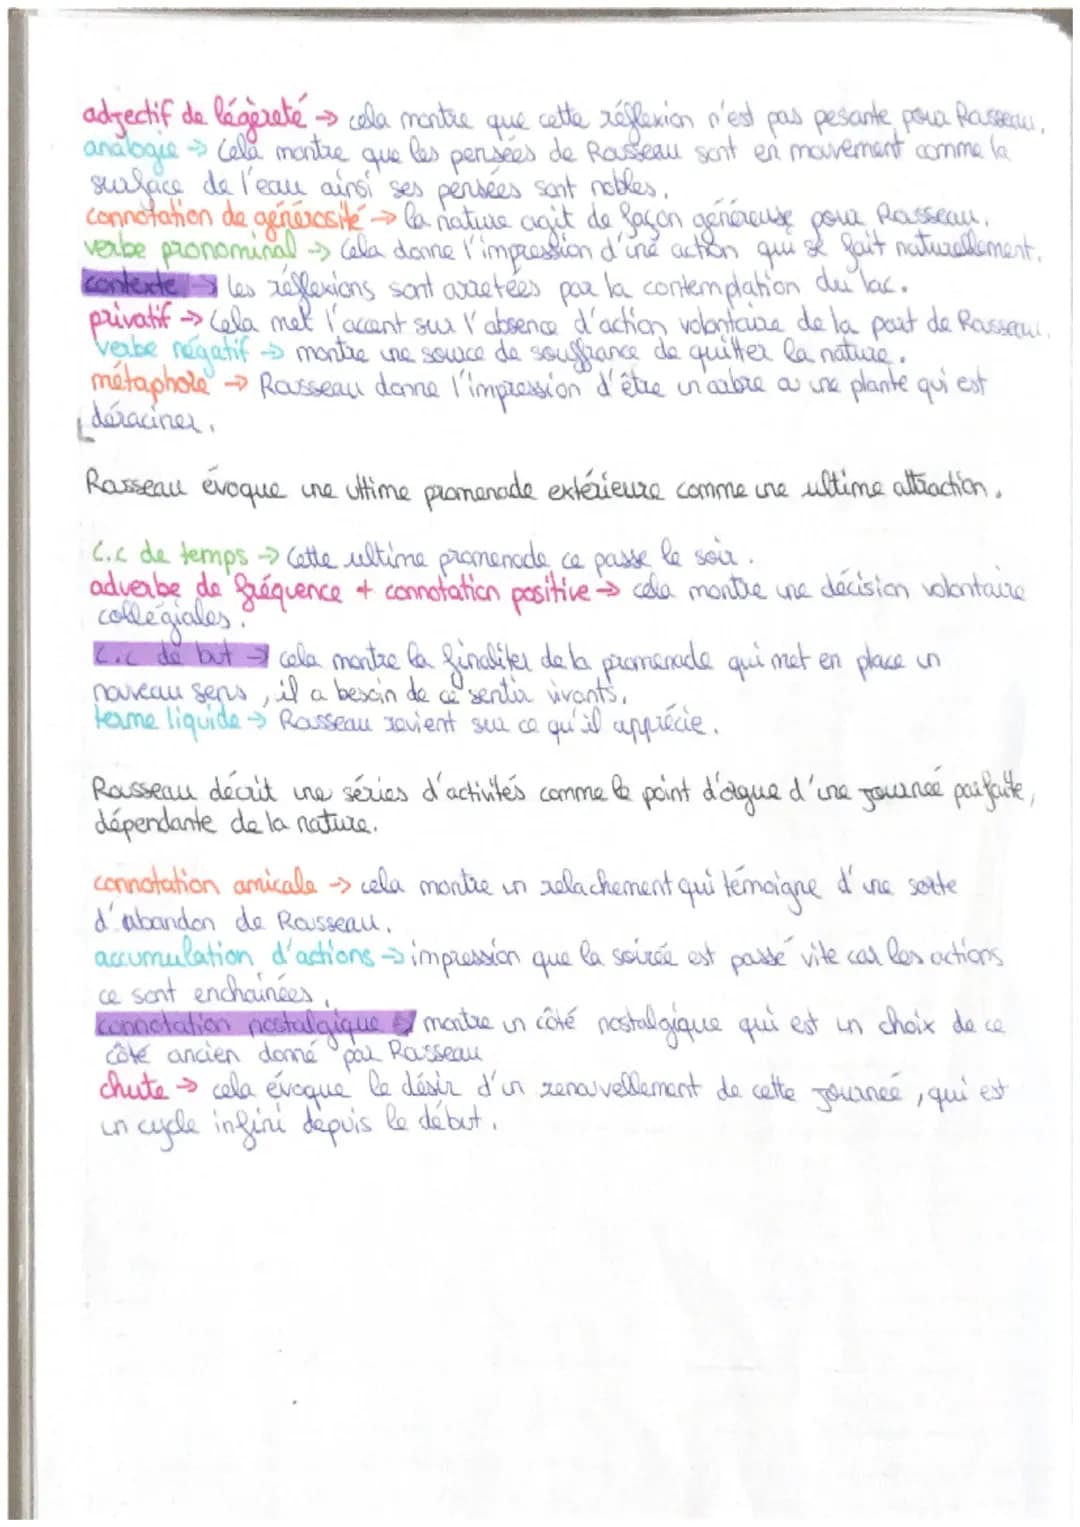 adjectif de légèreté → cela montre que cette réflexion n'est pas pesante pour Rousseau.
analogie → Cela montre que les pensées de Rousseau sont en mouvement comme la
surface de l'eau ainsi ses pensées sont nobles.
connotation de générosité → la nature agit de façon généreuse pour Rousseau.
verbe pronominal → Cela donne l'impression d'une action qui se fait naturellement.
contexte → les réflexions sont arretées par la contemplation du lac.
privatif → Cela met l'accent sur l'absence d'action volontaire de la part de Rousseau.
verbe négatif → montre une source de souffrance de quitter la nature.
métaphore → Rousseau donne l'impression d'être un arbre ou une plante qui est
déraciner.
Rousseau évoque une ultime promenade extérieure comme une ultime attraction.
C.C de temps → Cette ultime promenade ce passe le soir.
adverbe de fréquence + connotation positive → cela montre une décision volontaire
collégiales.
C.C de but → cela montre la finaliter de la promenade qui met en place un
nouveau sens, il a besoin de ce sentir vivants.
terme liquide → Rousseau revient sur ce qu'il apprécie.
Rousseau décrit une séries d'activités comme le point d'orgue d'une journeé parfaite,
dépendante de la nature.
connotation amicale → cela montre un relachement qui témoigne d'une sorte
d'abandon de Rousseau.
accumulation d'actions → impression que la soirée est passé vite car les actions
ce sont enchainées.
connotation nostalgique → montre un côté nostalgique qui est un choix de ce
côté ancien donné par Rousseau
chute → cela évoque le désir d'un renouvellement de cette journeé, qui est
un cycle infini depuis le début.